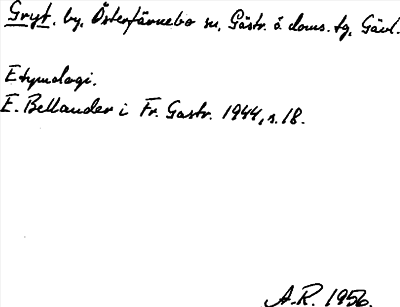 Gryt. by, Österfärnebo sn, Gästr. ö doms. tg, Gävl.
Etymologi.
E. Bellander i Fr. Gastr. 1944, s. 18.
A.R. 1956.